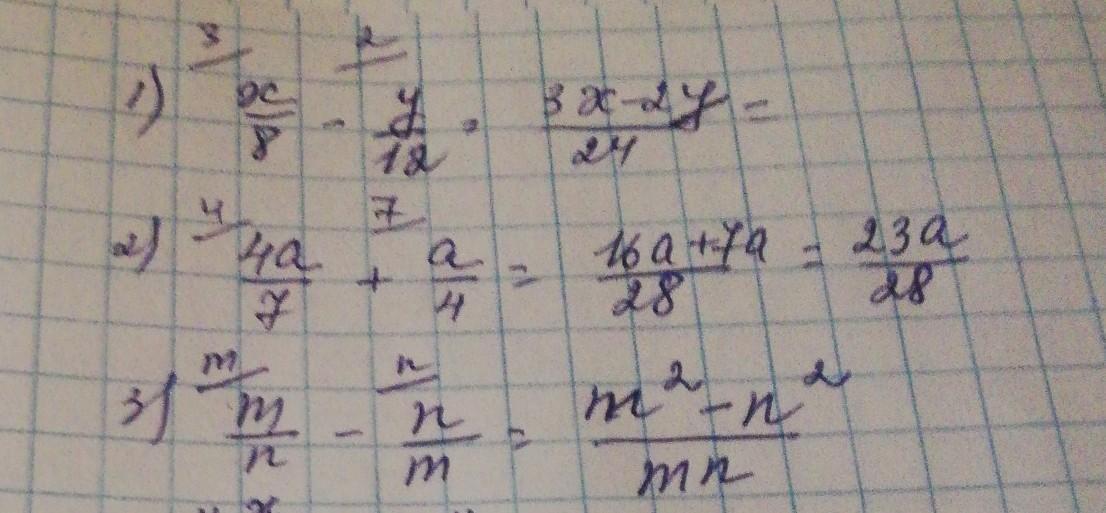 1) ³⁄ x/8 - ²⁄ y/12 = (3x-2y)/24 =
2) ⁴⁄ 4a/7 + ⁷⁄ a/4 = (16a+7a)/28 = 23a/28
3) ᵐ⁄ m/n - ⁿ⁄ n/m = (m²-n²)/mn